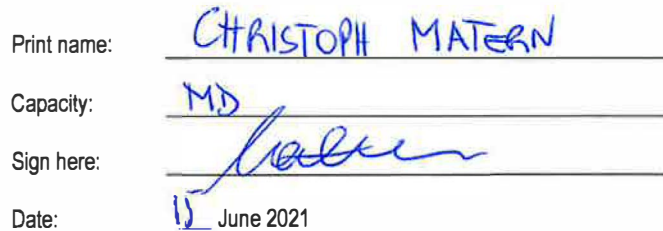 Print name: CHRISTOPH MATERN
Capacity: MD
Sign here:
Date: 15 June 2021